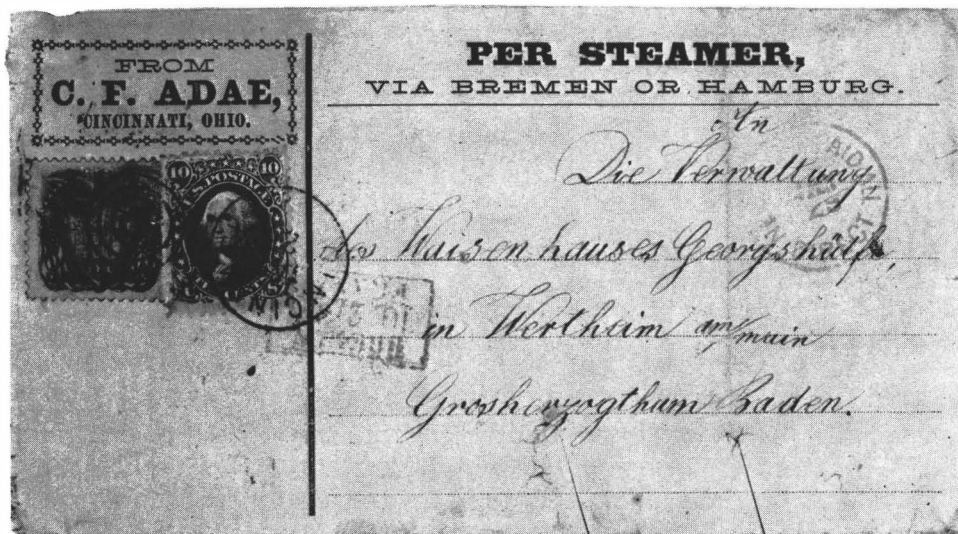 FROM
C. F. ADAE,
CINCINNATI, OHIO.
PER STEAMER,
VIA BREMEN OR HAMBURG.
An
Die Verwaltung
des Waisenhauses Georgshülfe,
in Wertheim am/main
Grosherzogthum Baden.
10 10
U.S. POSTAGE
CINCIN